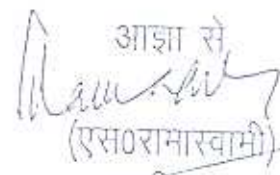 आज्ञा से
(एस0रामास्वामी)